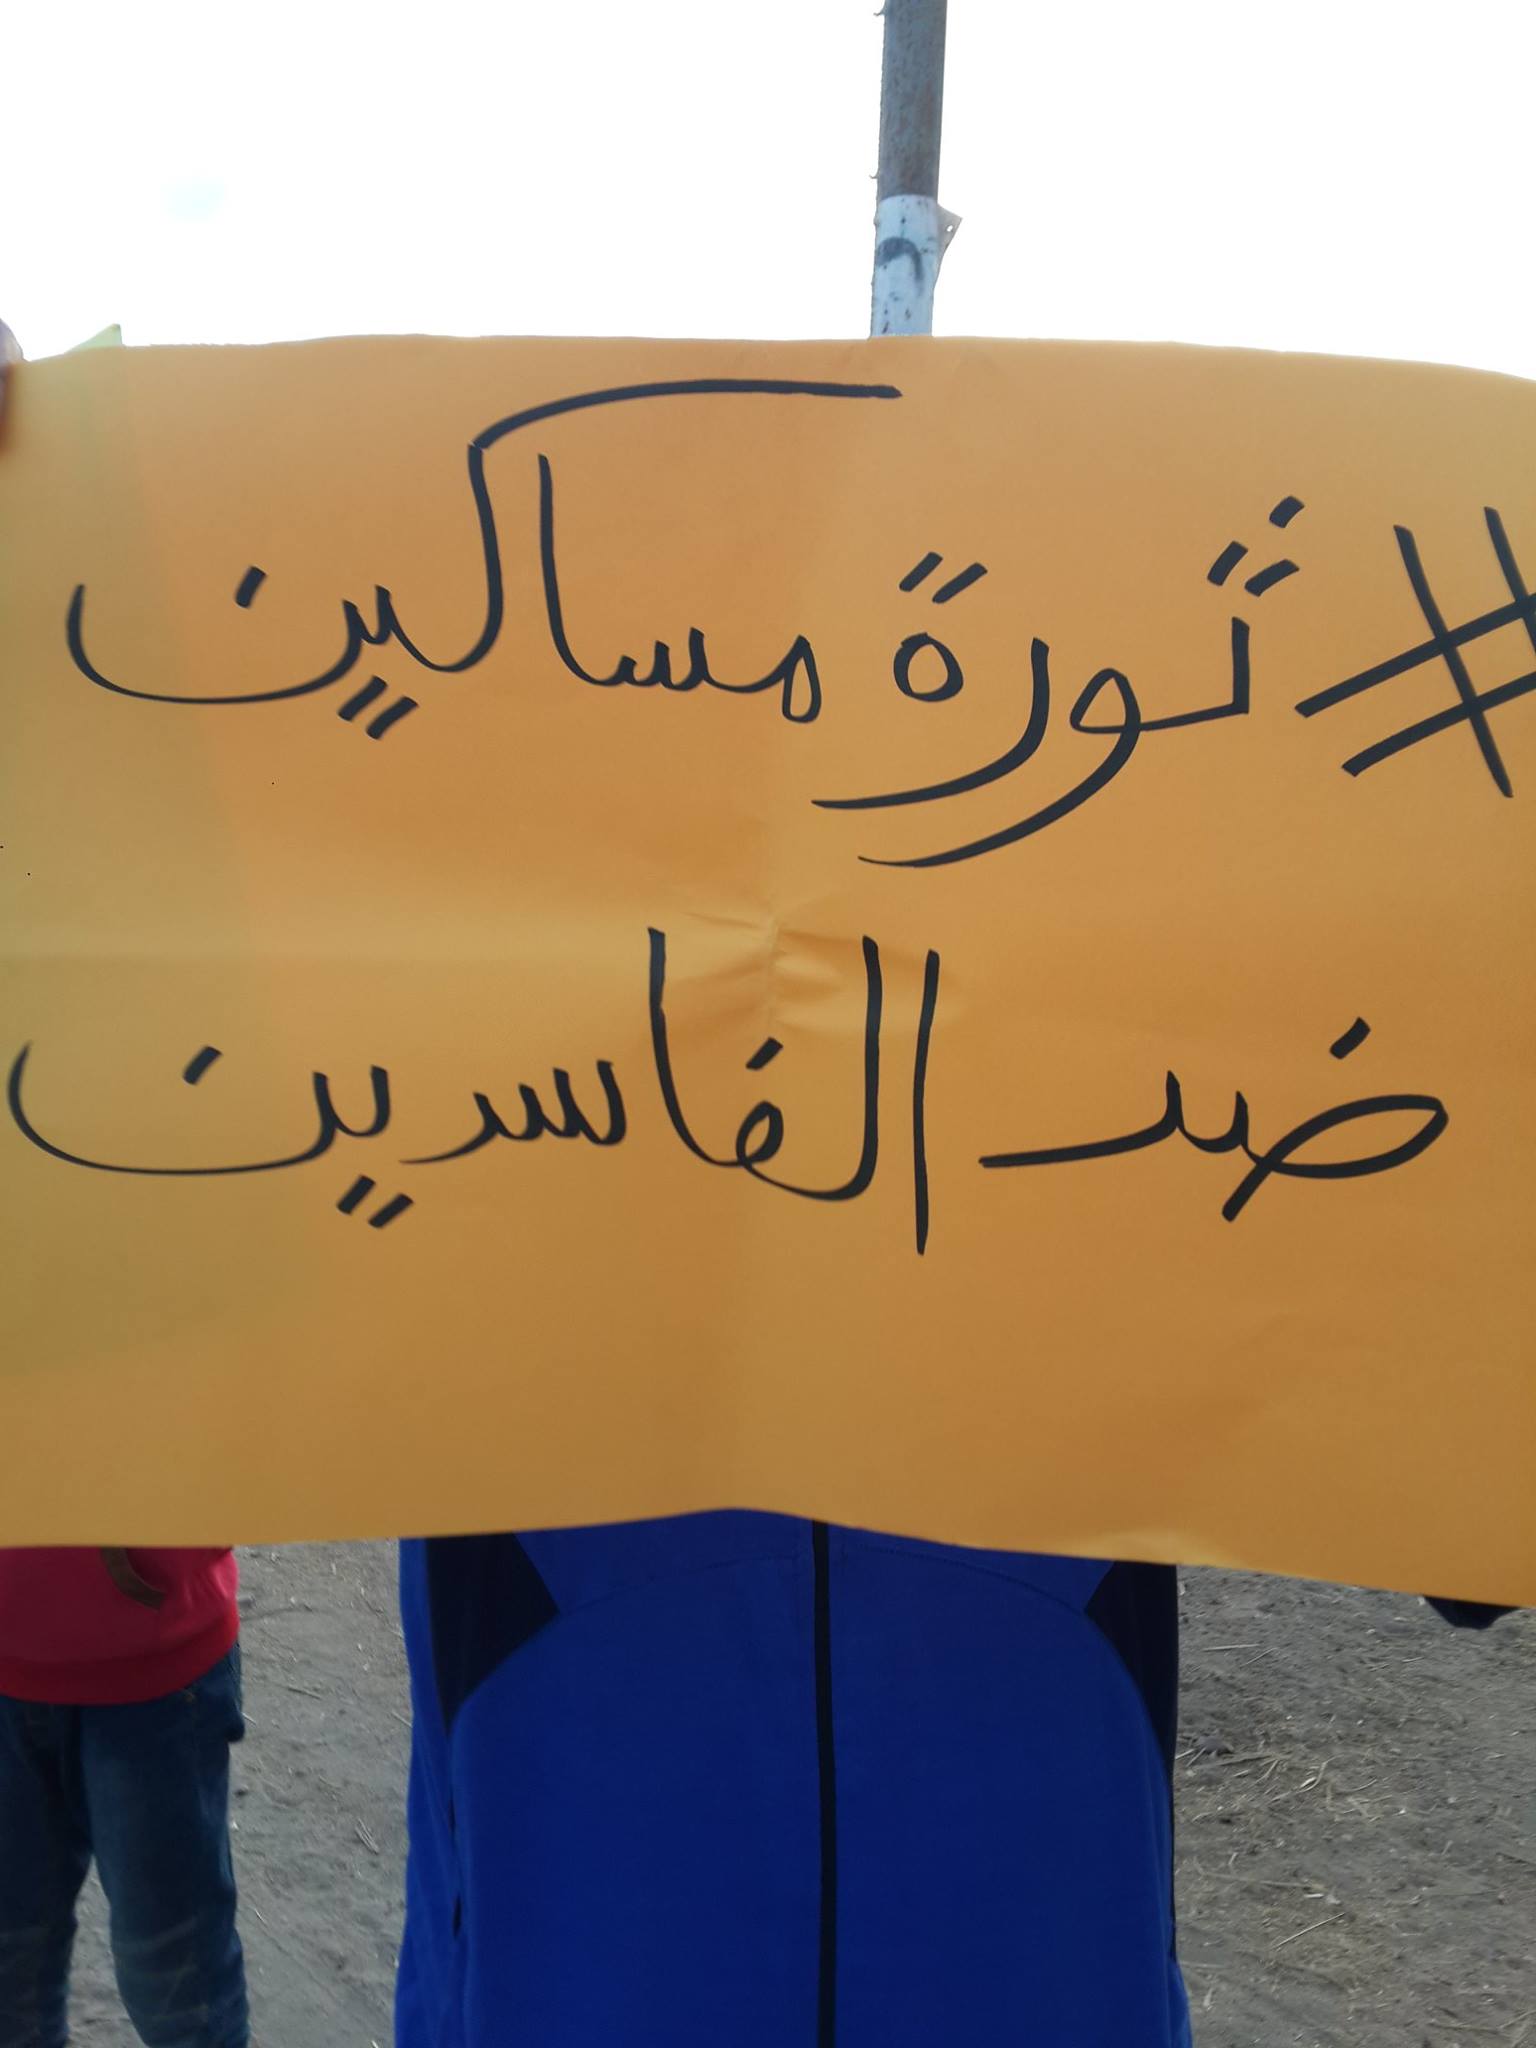 #ثورة مساكين
ضد الفاسدين